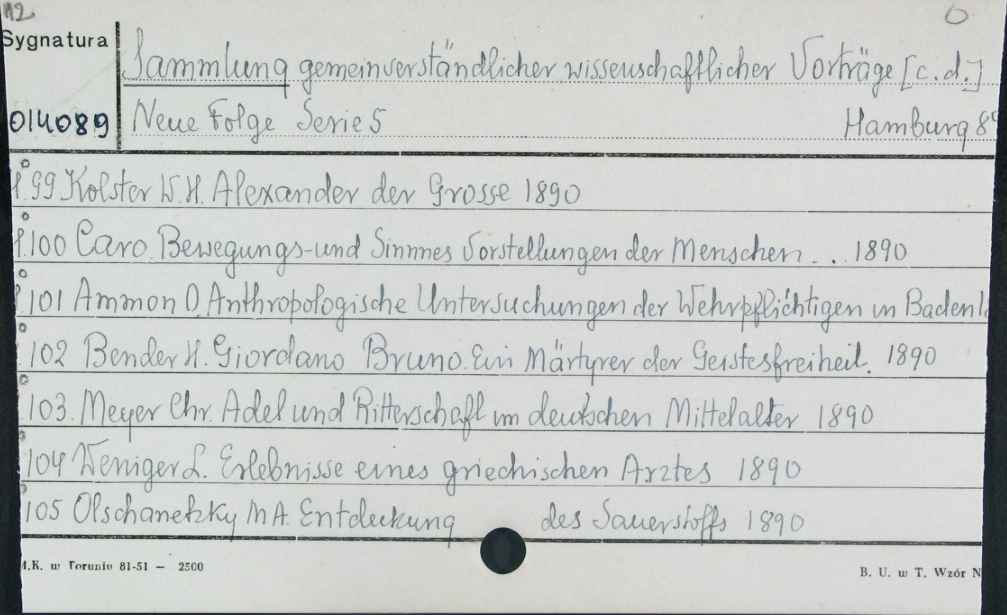 12 6
Sygnatura
Sammlung gemeinverständlicher wissenschaftlicher Vorträge [c.d.]
014089 Neue Folge Serie 5 Hamburg 89
99 Kolster W.H. Alexander der Grosse 1890
100 Caro. Bewegungs-und Sinnes Vorstellungen der Menschen... 1890
101 Ammon O. Anthropologische Untersuchungen der Wehrpflichtigen in Baden
102 Bender H. Giordano Bruno. Ein Märtyrer der Geistesfreiheit. 1890
103. Meyer Chr. Adel und Ritterschaft im deutschen Mittelalter 1890
104 Weniger L. Erlebnisse eines griechischen Arztes 1890
105 Olschanetzky M A. Entdeckung des Sauerstoffs 1890
.K. w Toruniu 81-51 — 2500
B. U. w T. Wzór N